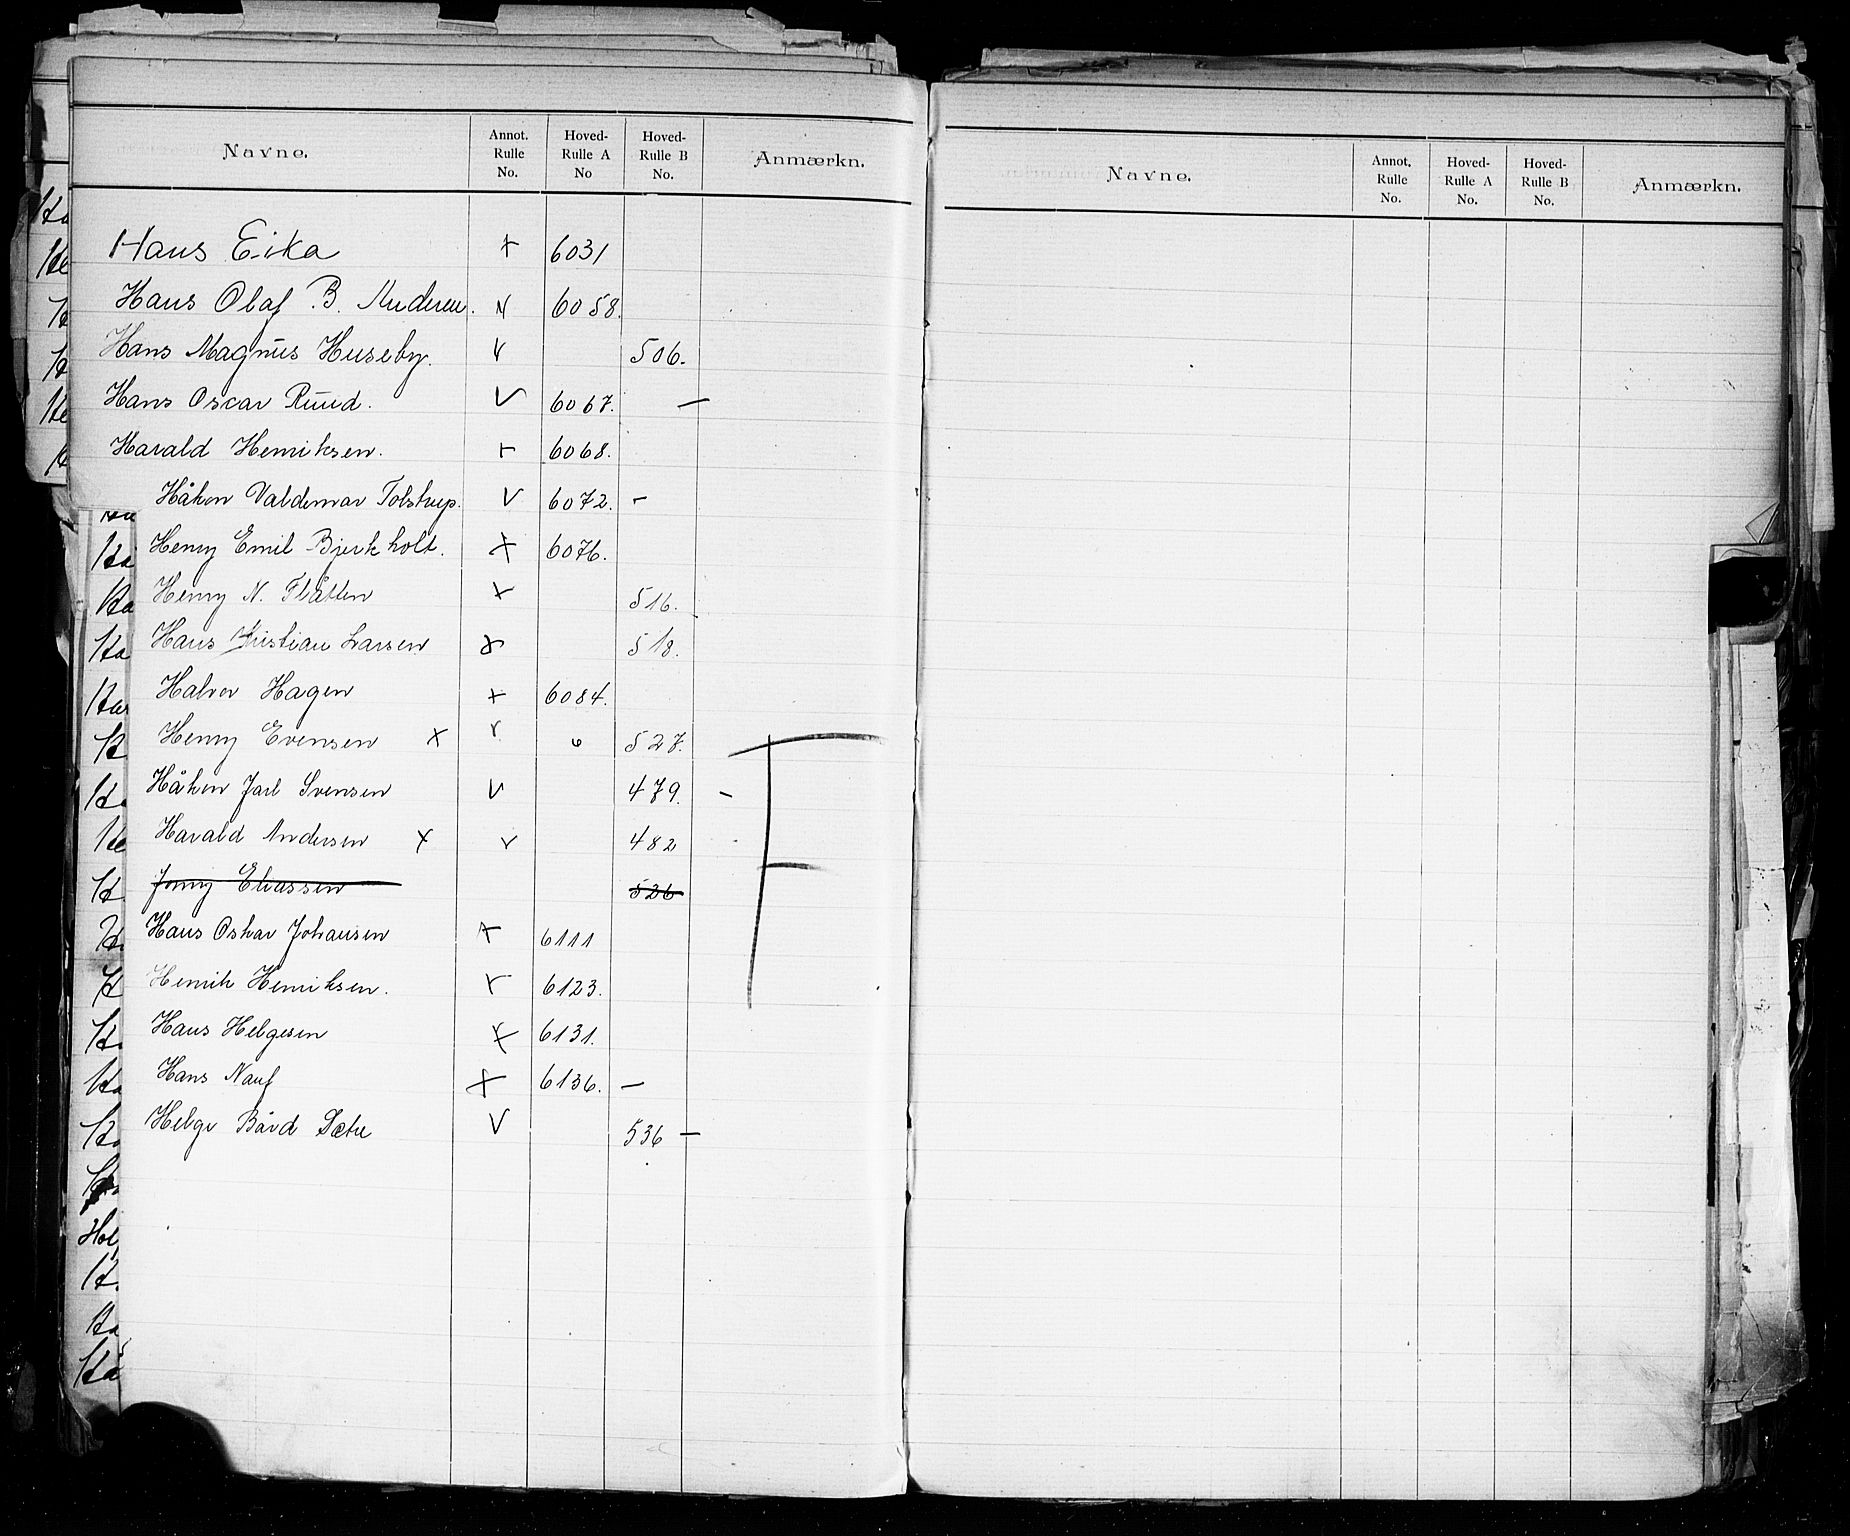 Navne. Annot. Rulle No. Hoved-Rulle A No Hoved-Rulle B No. Anmærkn.
Hans Eika 6031
Hans Olaf B. Andersen. 6058.
Hans Magnus Huseby. 506.
Hans Oscar Ruud. 6067. —
Harald Henriksen. 6068.
Håkon Valdemar Tolstrup. V 6072. –
Henry Emil Bjerkholt. X 6076.
Henry N. Flåtten X 516.
Hans Kristian Larsen 518.
Halvor Hagen x 6084.
Henry Evensen X 527.
Håkon Jarl Svensen V 479. –
Harald Andersen X v 482
Jonny Eliassen 526
Hans Oskar Johansen 6111
Henrik Henriksen. 6123.
Hans Helgesen X 6131.
Hans Nauf X 6136. –
Helge Bård Sætre V 536 –
F
Navne. Annot. Rulle No. Hoved-Rulle A No. Hoved-Rulle B No. Anmærkn.